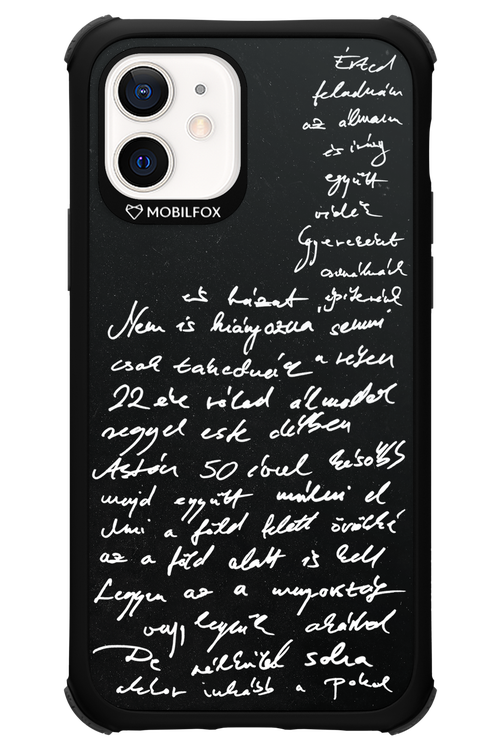 MOBILFOX
Érted
feladnám
az álmam
és így
együtt
vidék
Gyerekeket
csinálnánk
és házat építenénk
Nem is hiányozna semmi
csak takednék a
22 éve rólad álmodok
reggel este délben
Aztán 50 évvel később
majd együtt múlni el
Ami a föld felett örökké
az a föld alatt is kell
Legyen az a mennyország
vagy legyünk akárhol
De nélküled soha
akkor inkább a Pokol